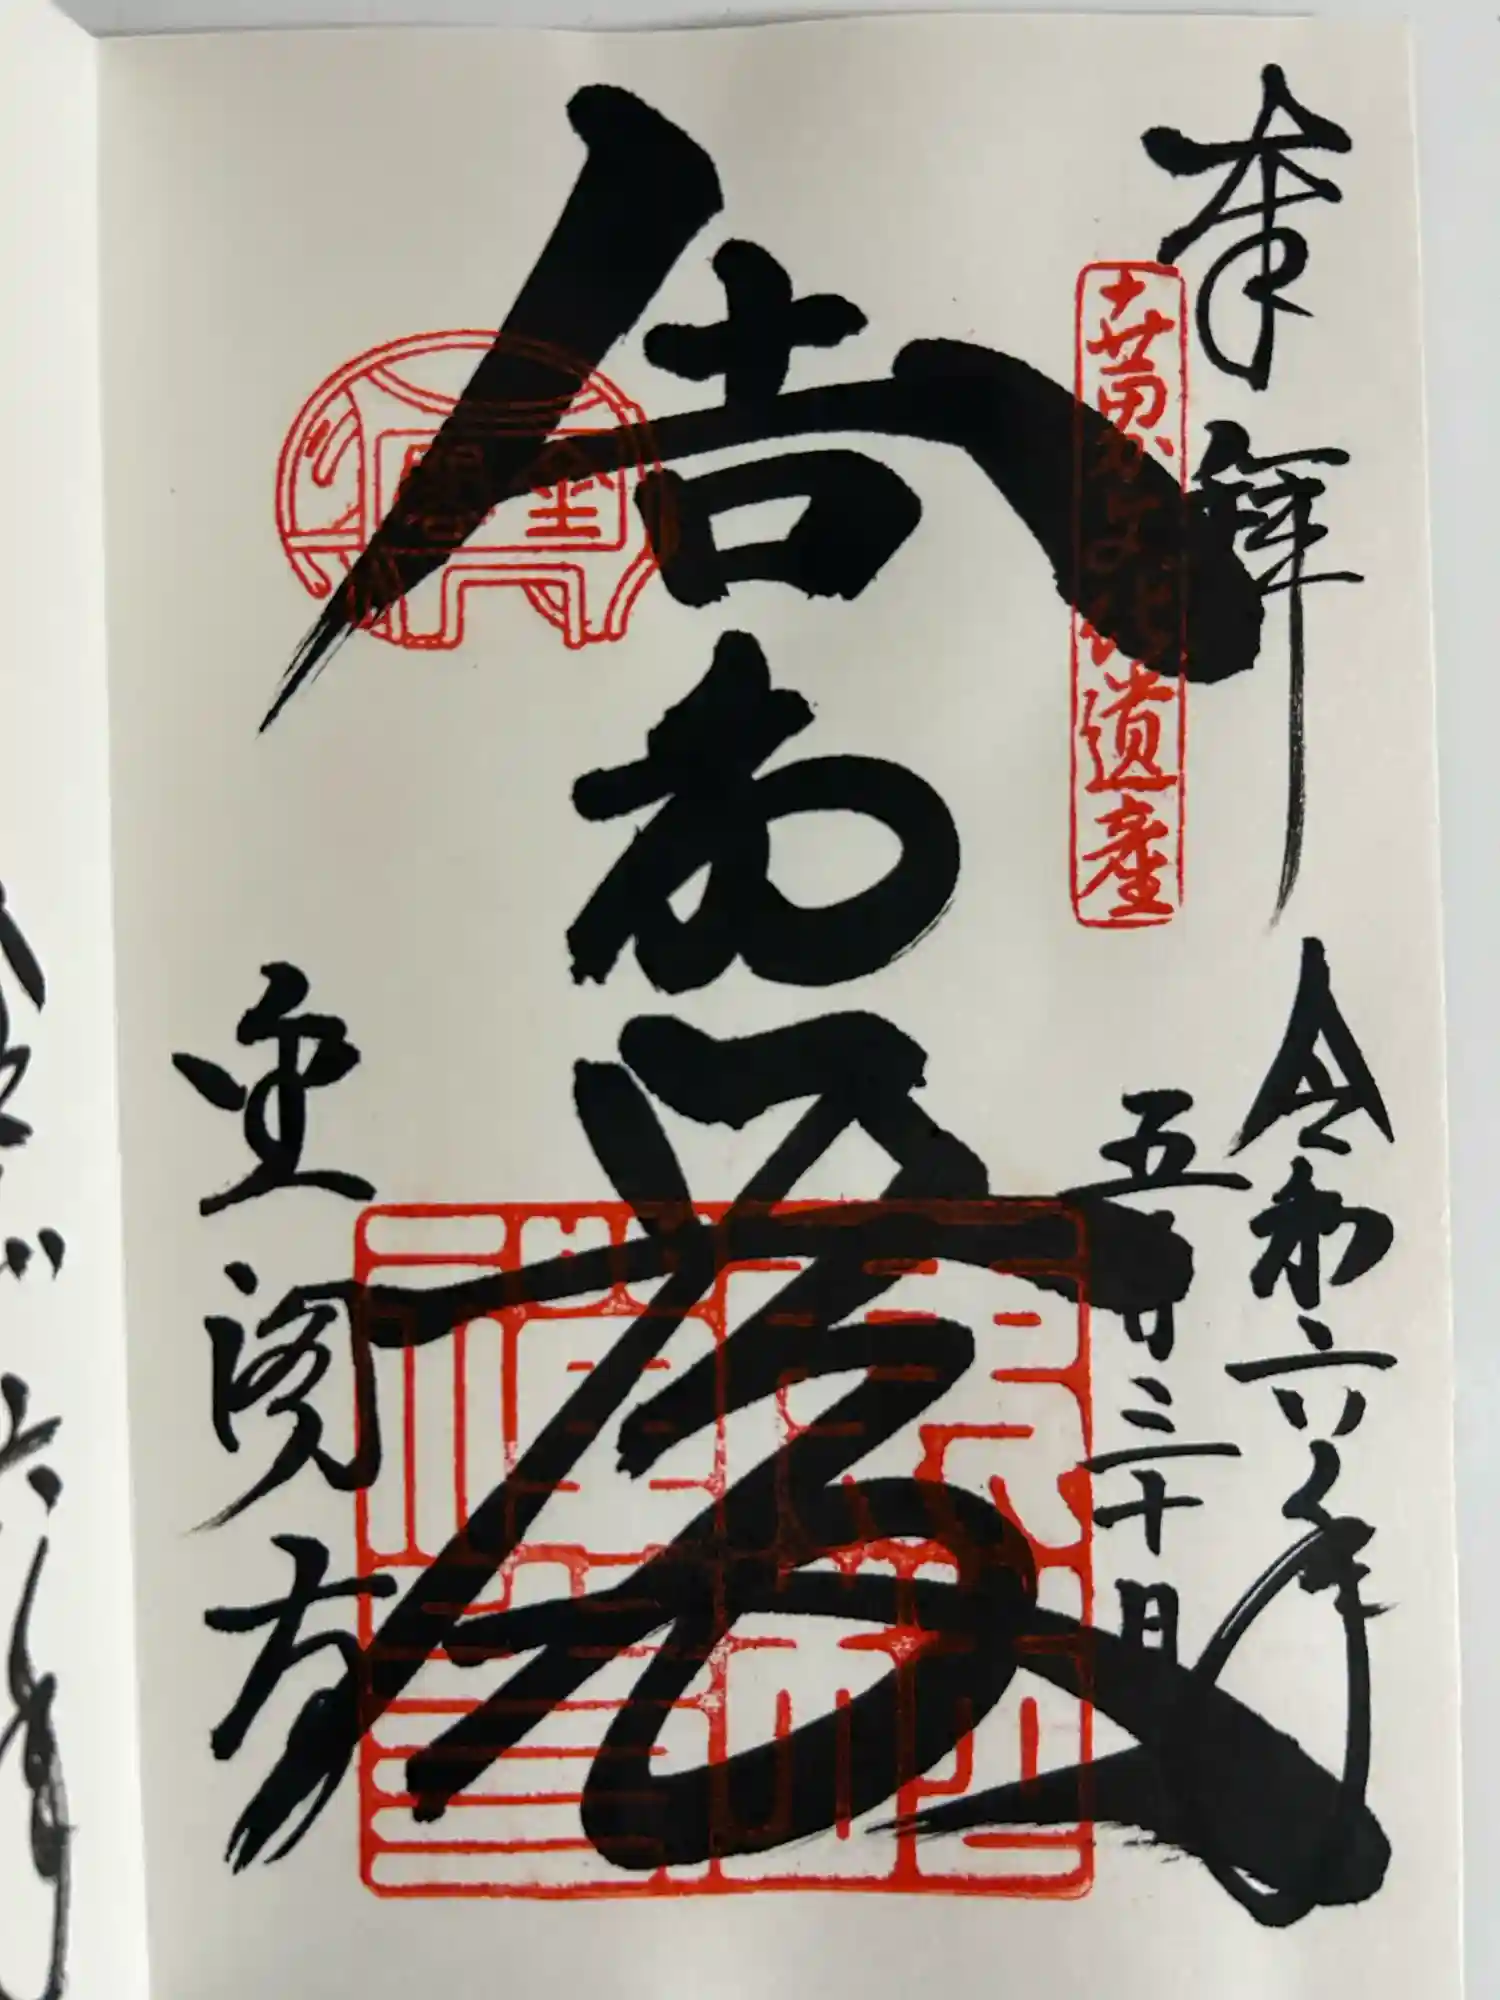 奉拝
令和六年
五月三十日
世界文化遺産
舎利殿
金閣寺